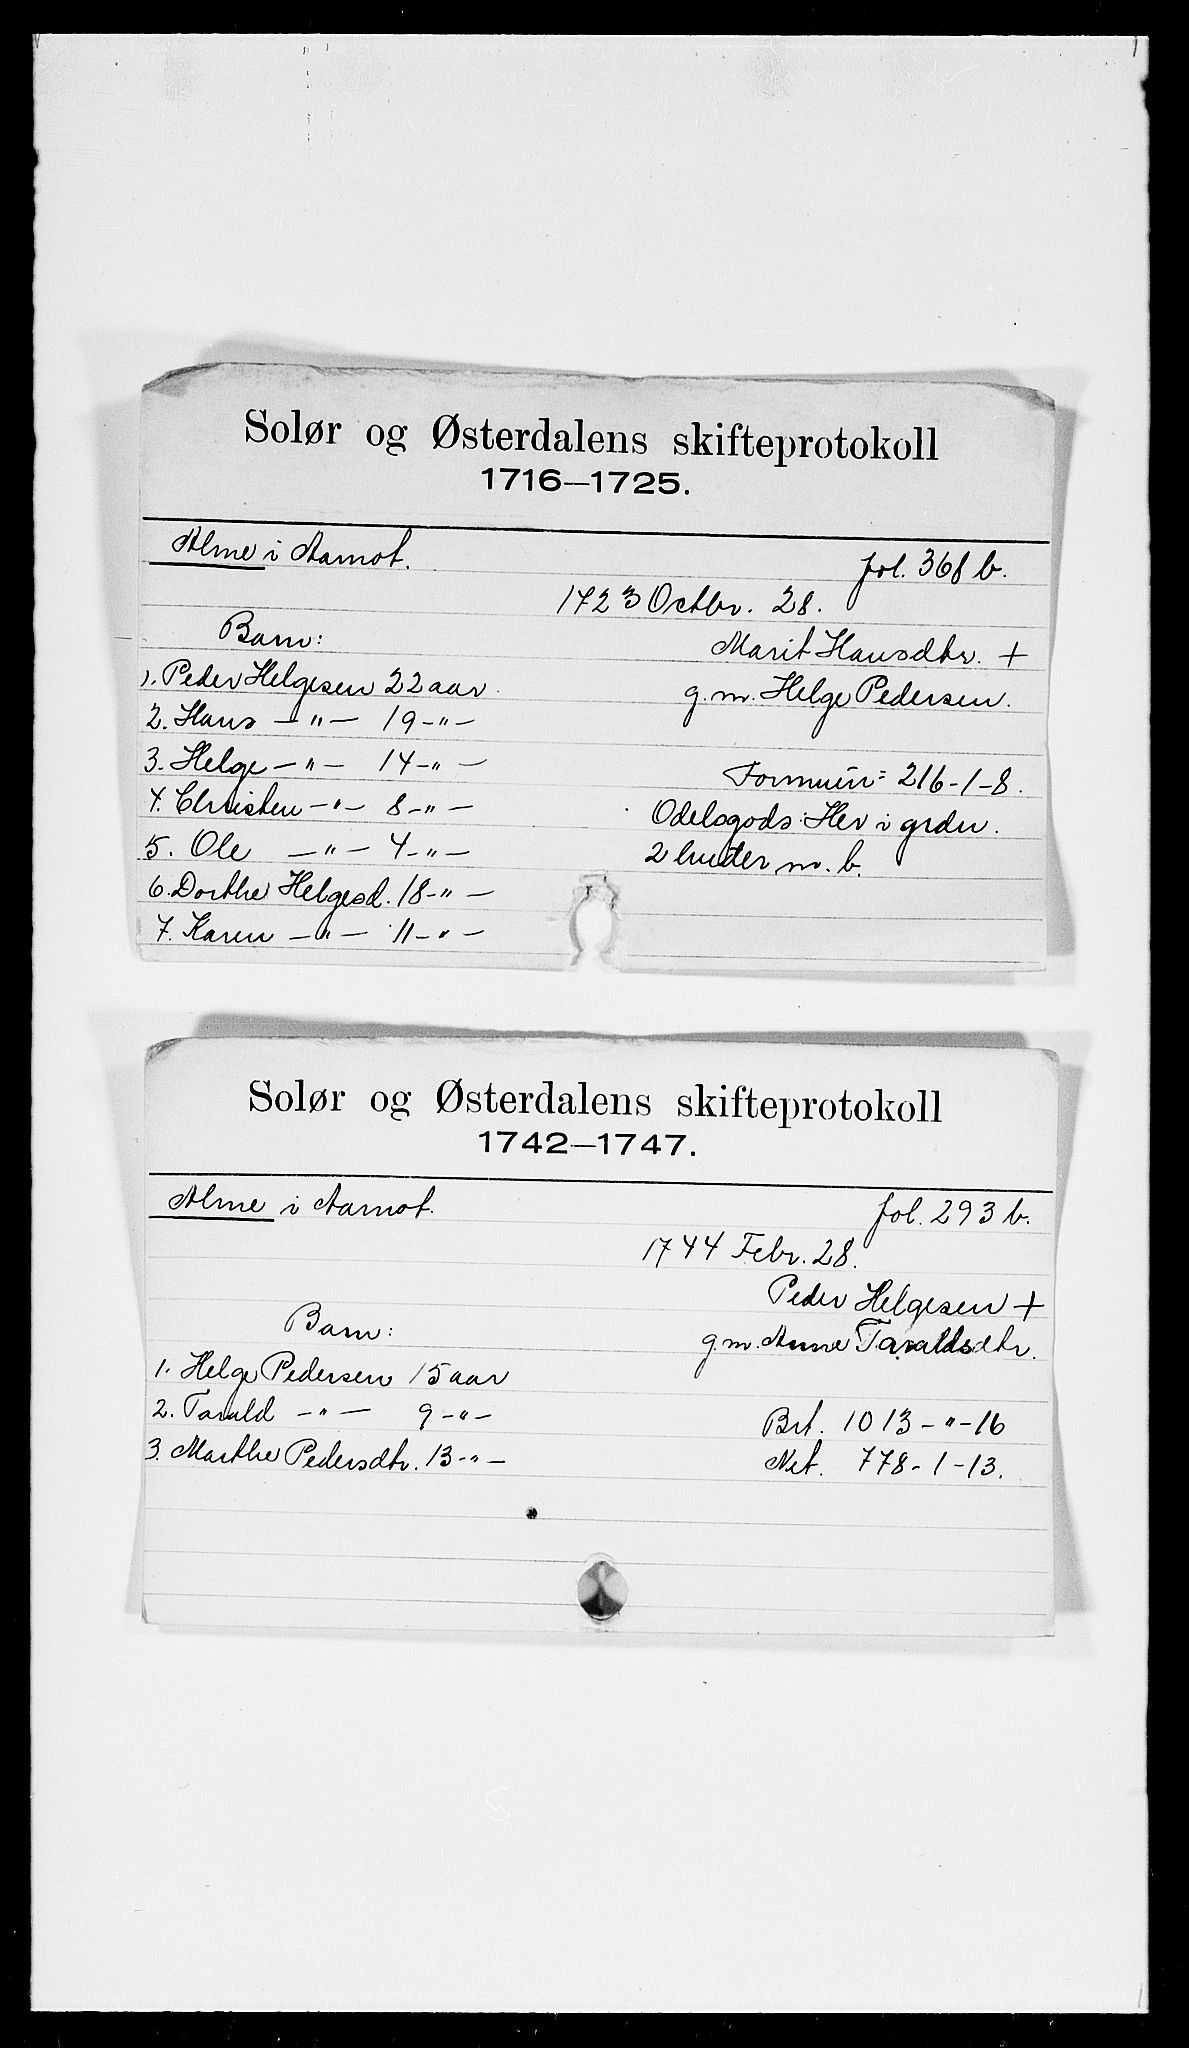 Solør og Østerdalens skifteprotokoll
1716—1725.
Alme i Aamot.
fol. 368 b.
1723 Octbr. 28.
Barn:
Marit Hansdtr. +
g.m. Helge Pedersen.
1. Peder Helgesen 22 aar.
2. Hans —"— 19-"-
3. Helge —"— 14-"-
4. Christen —"— 8-"-
5. Ole —"— 4-"-
6. Dorthe Helgesd. 18-"-
7. Karen —"— 11-"-
Formuen: 216-1-8.
Odelsgods: Her i grden.
2 huder m. b.
Solør og Østerdalens skifteprotokoll
1742—1747.
Alme i Aamot.
fol. 293 b.
1744 Febr. 28.
Peder Helgesen +
g.m. Anne Taraldsdtr.
Barn:
1. Helge Pedersen 15 aar
2. Tarald —"— 9-"-
3. Marthe Pedersdtr. 13-"-
Brt. 1013-"-16
Net. 778-1-13.